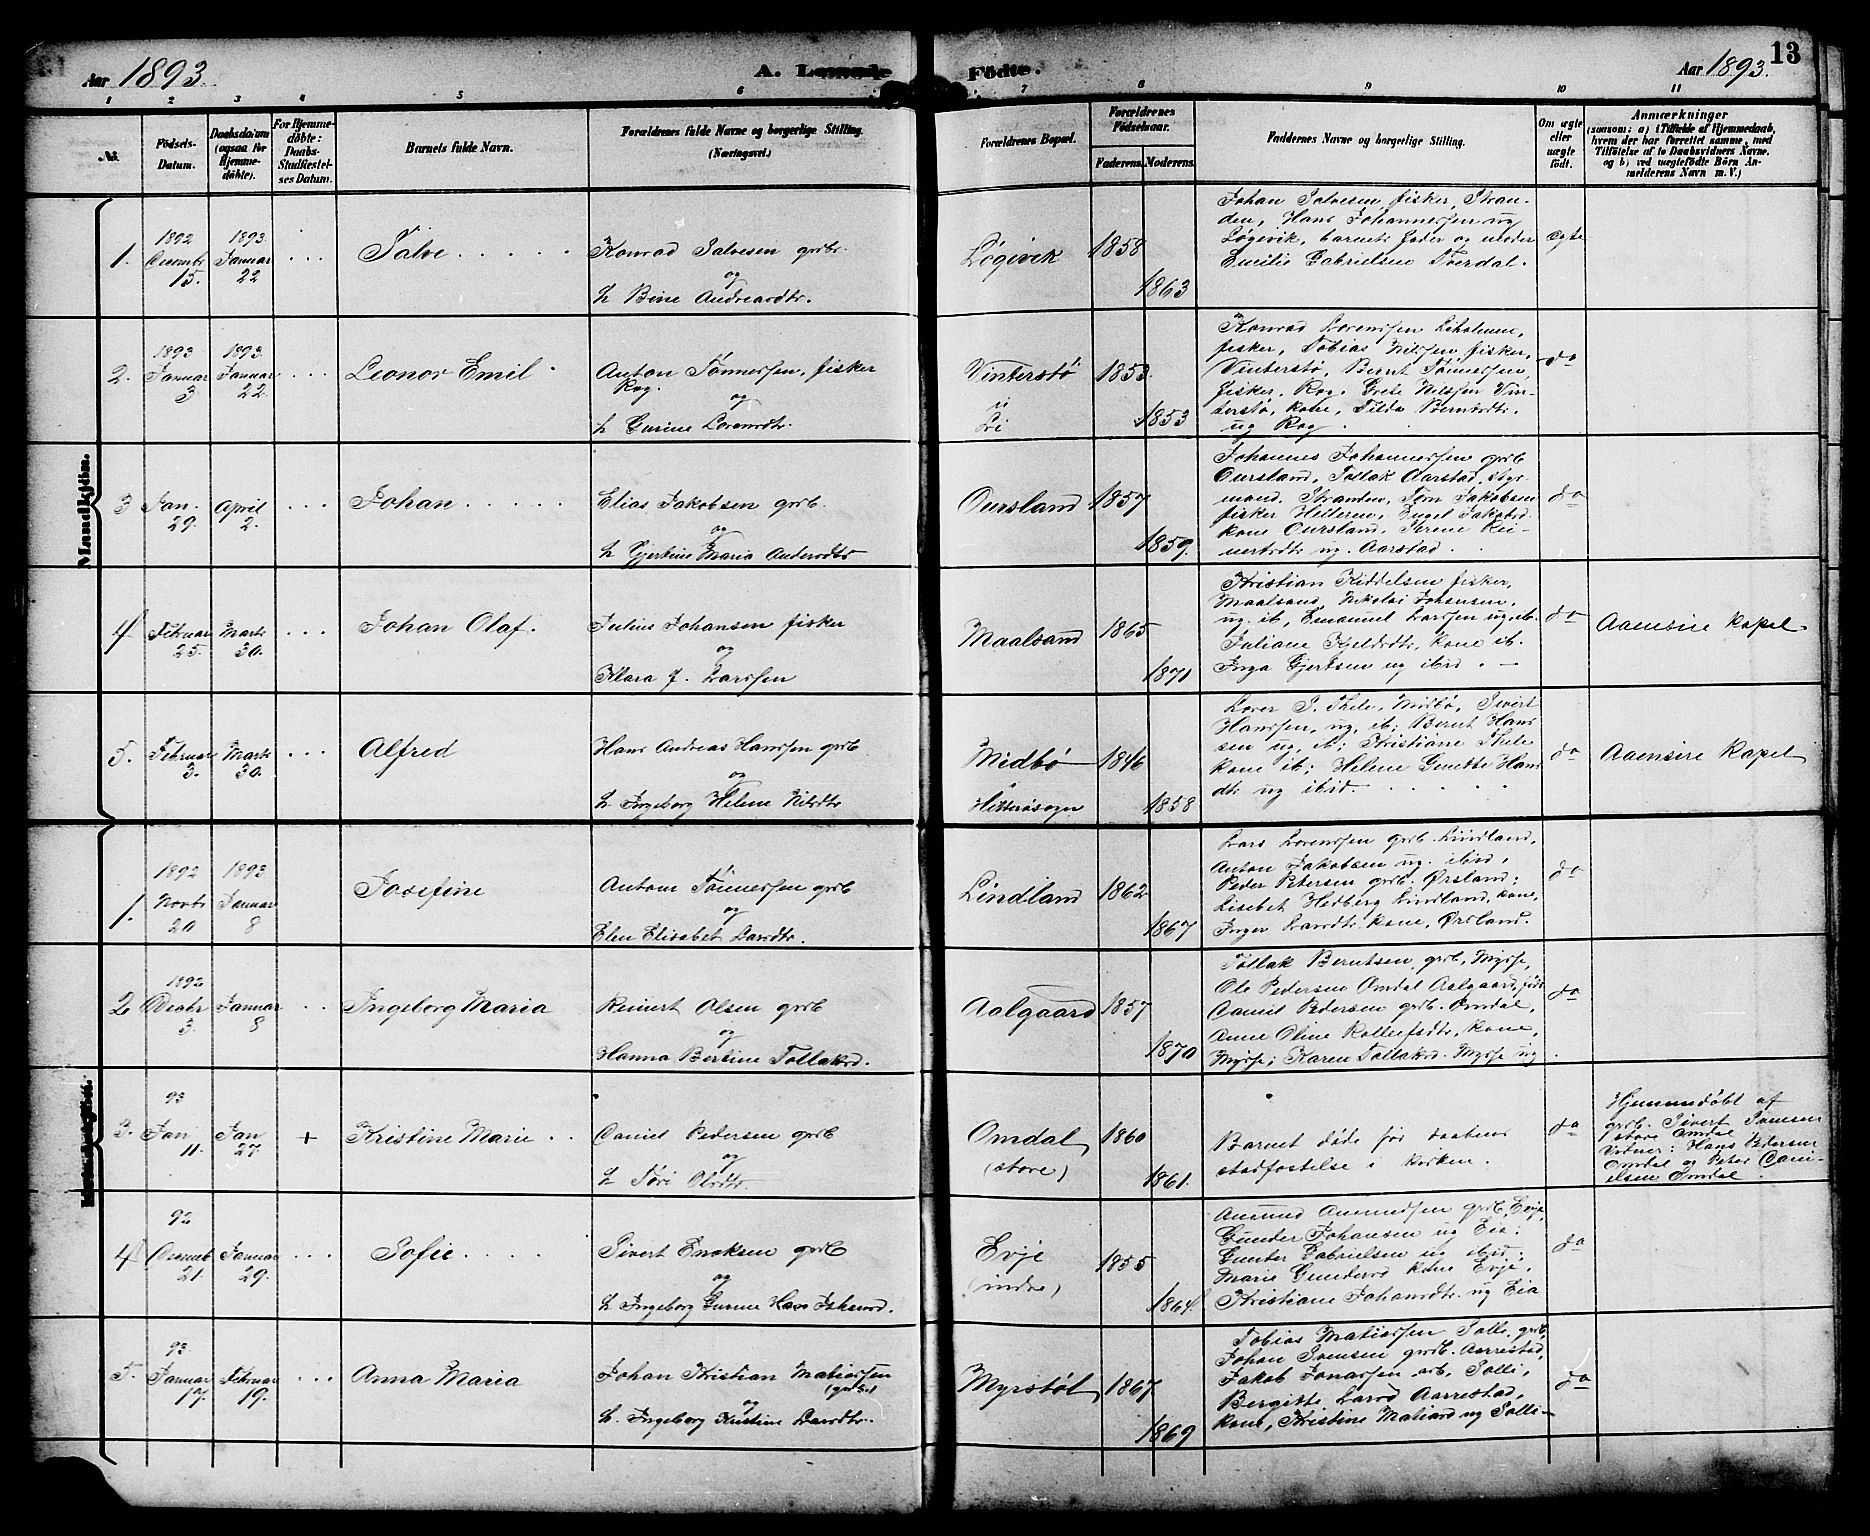 Aar 1893.
A. Levende Födte.
Aar 1893.
13
1 2 3 4 5 6 7 8 9 10 11
№
Födsels-Datum.
Daabsdatum (ogsaa for Hjemmedöbte).
For Hjemmedöbte: Daabs-Stadfæstelses Datum.
Barnets fulde Navn.
Forældrenes fulde Navne og borgerlige Stilling. (Næringsvei.)
Forældrenes Bopæl.
Forældrenes Födselsaar.
Faderens. Moderens.
Faddernes Navne og borgerlige Stilling.
Om ægte eller uægte födt.
Anmærkninger
(saasom: a) i Tilfælde af Hjemmedaab, hvem der har forrettet samme, med Tilföielse af to Daabsvidners Navne, og b) ved uægtefödte Börn Anmelderens Navn m. V.)
Mandkjön.
1. 1892 Decembr 15. 1893 Januar 22 Salve
Konrad Salvesen grdbr.
og
h Bine Andreasdtr.
Løgivik 1858 1863
Johan Salvesen fisker, Stran-
den, Hans Johannessen ug
Løgivik, barnets fader og moder
Emilie Gabrielsen Tverdal.
ægte
2. 1893 Januar 3 1893 Januar 22. Leonor Emil
Anton Tønnessen, fisker
Rog.
og
h Gurine Lorensdtr.
Vinterstø i Li 1853. 1853
Konrad Lorenssen Liholmen,
fisker, Tobias Nilssen fisker,
Vinterstø, Bernt Tønnessen,
fisker, Rog. Grete Nilssen Vin-
terstø, kone, Tilda Berntsdtr.
ug Rog.
do
3 Jan. 29. April 2. Johan
Elias Jakobsen grdb.
og
h Gjertine Maria Andersdtr
Oursland 1857 1859.
Johannes Johannessen grdb
Oursland, Tollak Aarstad, styr-
mand. Stranden, Tørn Jakobsen
fisker Helleren, Engel Jakobsd.
kone Oursland. Serene Rei-
nertsdtr ug. Aarstad.
do
4 Februar 25. Marts 30. Johan Olaf.
Julius Johansen fisker
og
Klara f. Larssen
Maalsand 1865 1871
Kristian Kiddelsen fisker,
Maalsand, Nikolai Johansen,
ug. ib, Emanuel Larssen ug. ib.
Juliane Kjeldsdtr, kone ib.
Inga Gjertsen ug ibid.
do Aaensire kapel.
5. Februar 3. Marts 30. Alfred
Hans Andreas Hanssen grdb
og
h Ingeborg Helene Nilsdtr
Midbø Hitterøsogn 1846 1858
S. Thele, Midbø, Sivert
Hanssen, ug. ib; Bernt Hans
sen ug. ib; Kristiane Thele
kone ib; Helene Gunette Hans
dtr ug ibid.
do Aaensire kapel
1. 1892 Novbr 20 1893 Januar 8 Josefine
Anton Tønnessen grdb
og
Elen Elisabet Larsdtr.
Lindland 1862 1867
Lars Lorenssen grdb. Lindland,
Anton Jakobsen ug. ibid,
Peder Petersen grdb. Ørsland;
Lisebet Hedberg Lindland, kone,
Inger Larsdtr kone, Ørsland.
do
2 1892 Decbr 3. Januar 8. Ingeborg Maria
Reinert Olsen grdb
og
Hanna Bertine Tollaksd.
Aalgaard 1857 1870
Tollak Berntsen, grdb, Mysse,
Ole Pedersen Omdal Aalgaard,
Daniel Pedersen grdb. Omdal,
Anne Oline Rollefsdtr, kone,
Mysse; Karen Tollaksd. Mysse ug
do
3. 93 Jan 11. Jan 27. + Kristine Marie
Daniel Pedersen grdb
og
h Tori Olsdtr.
Omdal (store) 1860 1861.
Barnet døde før daabens
stadfæstelse i kirken.
do
Hjemmedøbt af
grdb. Sivert Svensen
store Omdal
Vidner: Hans Pedersen
Omdal og Peter Dani-
elsen Omdal.
4 92 Decemb 21. Januar 29. Sofie
Sivert Enoksen grdb
og
h Ingeborg Gurine Hans Johansd.
Evje (indre) 1855 1864.
Aamund Aamundsen grdb, Evje,
Gunder Johansen ug Eia.
Gunder Gabrielsen ug ibid;
Marie Gundersd kone Evje,
Kristiane Johansdtr. ug Eia
do
5. 93 Januar 17. Februar 19. Anna Maria
Johan Kristian Matiassen
(grdb)
og
h. Ingeborg Kristine Larsdtr.
Myrstøl 1867 1869
Tobias Matiassen Solli, grdb,
Johan Svensen grdb. Aarrestad,
Jakob Jonassen, arb. Solli,
Bergitte Larsd Aarrestad,
kone, Kristine Matiasd ug Solli
do